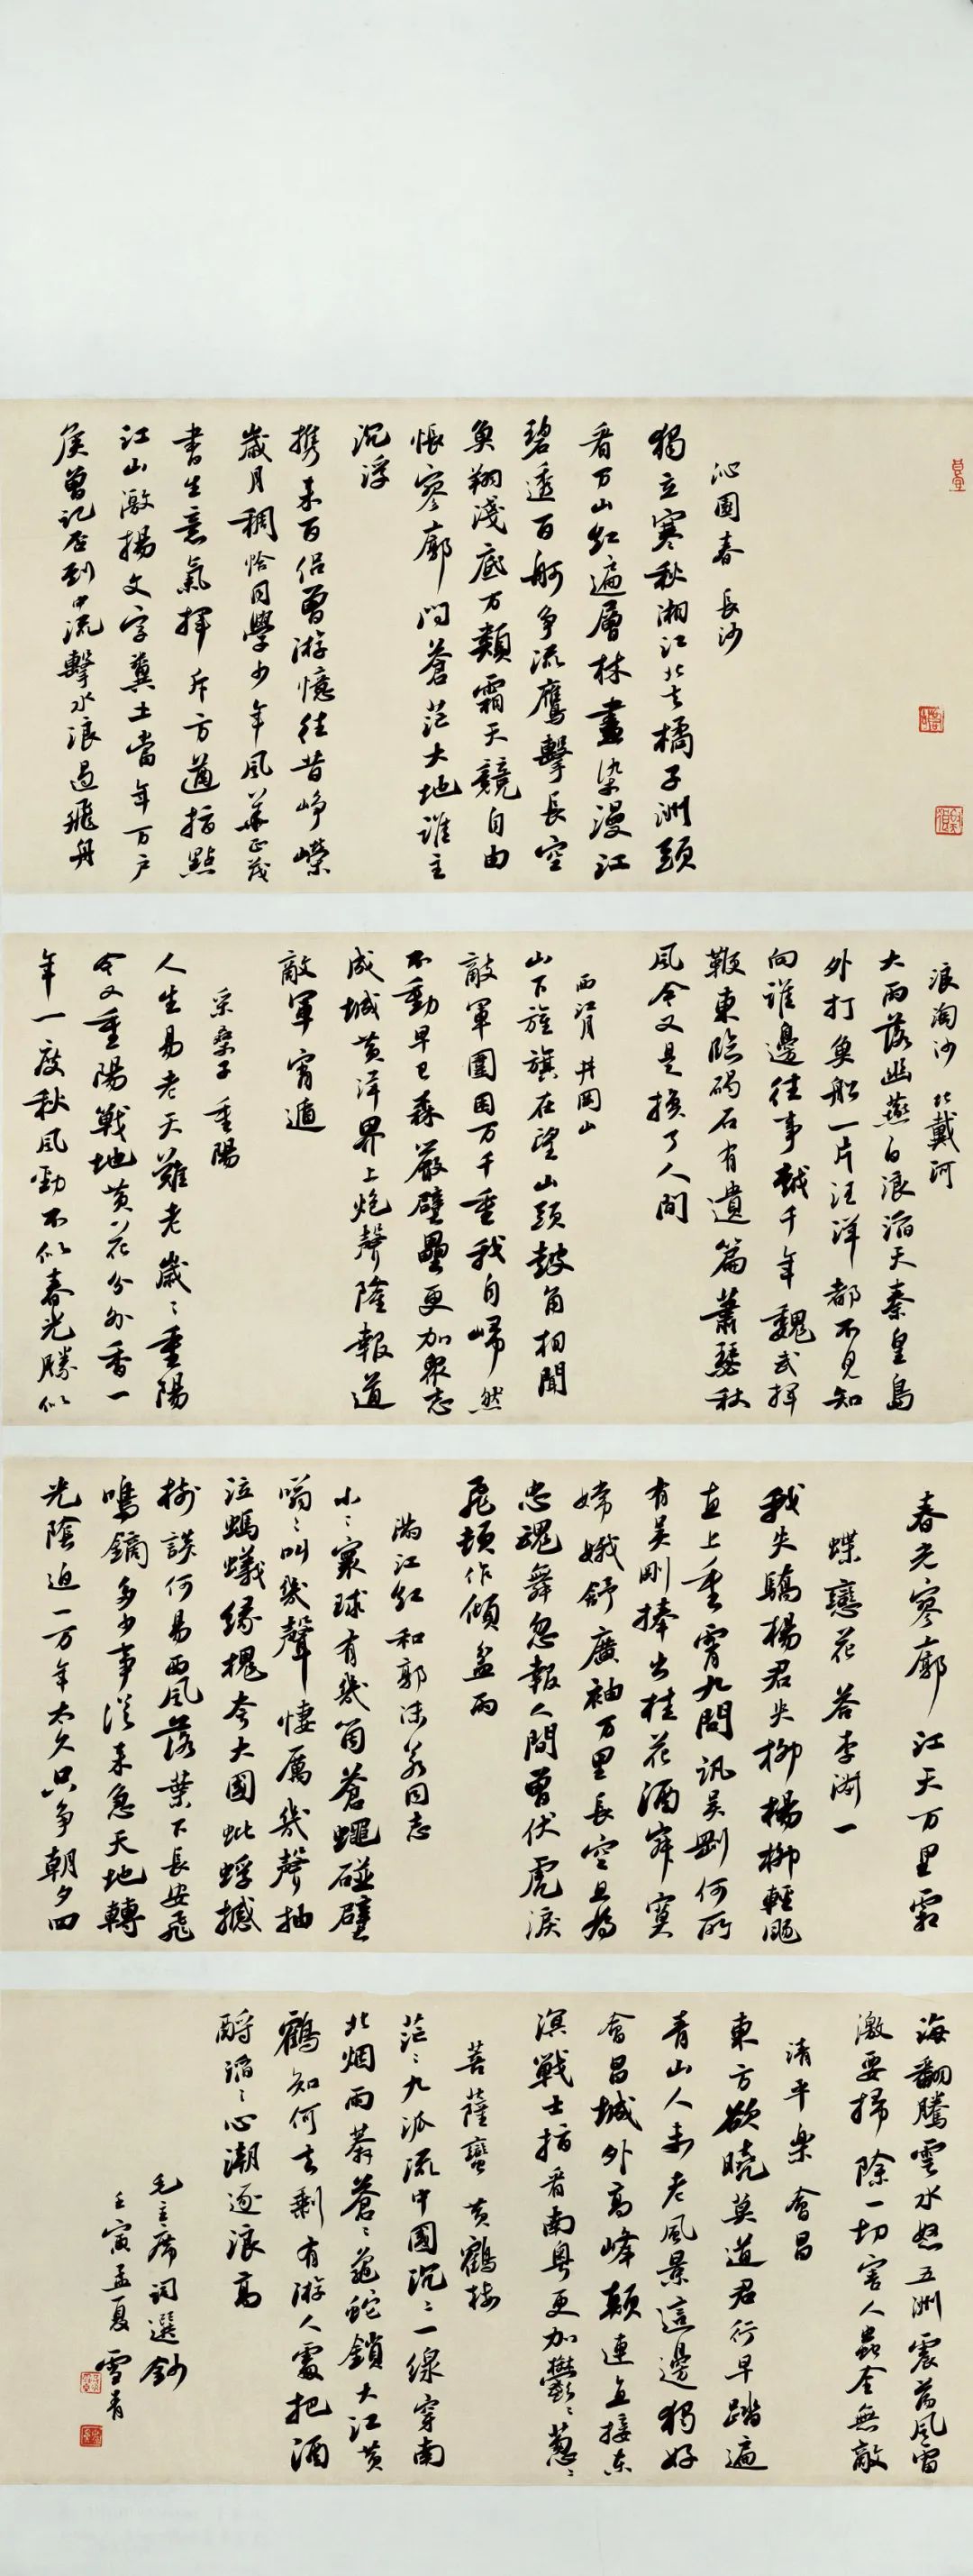 沁園春 長沙
獨立寒秋湘江北去橘子洲頭
看万山紅遍層林盡染漫江
碧透百舸争流鷹擊長空
魚翔淺底万類霜天競自由
悵寥廓問蒼茫大地誰主
沉浮
携来百侣曾游憶往昔崢嶸
歲月稠恰同學少年風華正茂
書生意氣揮斥方遒指點
江山激揚文字糞土當年万户
侯曾记否到中流擊水浪遏飛舟
浪淘沙 北戴河
大雨落幽燕白浪滔天秦皇島
外打魚船一片汪洋都不見知
向誰邊往事越千年魏武揮
鞭東臨碣石有遺篇蕭瑟秋
風今又是换了人間
西江月 井岡山
山下旌旗在望山頭鼓角相聞
敵軍圍困万千重我自巋然
不動早已森嚴壁壘更加衆志
成城黄洋界上炮聲隆報道
敵軍宵遁
采桑子 重陽
人生易老天難老歲〻重陽
今又重陽戰地黄花分外香一
年一度秋風勁不似春光勝似
春光寥廓江天万里霜
蝶戀花 答李淑一
我失驕楊君失柳楊柳輕颺
直上重霄九問訊吴剛何所
有吴剛捧出桂花酒寂寞
嫦娥舒廣袖万里長空且為
忠魂舞忽報人間曾伏虎淚
飛頓作傾盆雨
滿江紅 和郭沫若同志
小〻寰球有幾個蒼蠅碰壁
嗡〻叫幾聲悽厲幾聲抽
泣螞蟻緣槐夸大國蚍蜉撼
樹談何易西風落葉下長安飛
鳴鏑多少事從来急天地轉
光陰迫一万年太久只争朝夕四
海翻騰雲水怒五洲震蕩風雷
激要掃除一切害人蟲全無敵
清平樂 會昌
東方欲曉莫道君行早踏遍
青山人未老風景這邊獨好
會昌城外高峰顛連直接东
溟戰士指看南粤更加鬱〻蔥〻
菩薩蠻 黄鶴樓
茫〻九派流中國沉〻一線穿南
北烟雨莽蒼〻龜蛇鎖大江黄
鶴知何去剩有游人處把酒
酹滔〻心潮逐浪高
毛主席詞選鈔
壬寅孟夏雪青